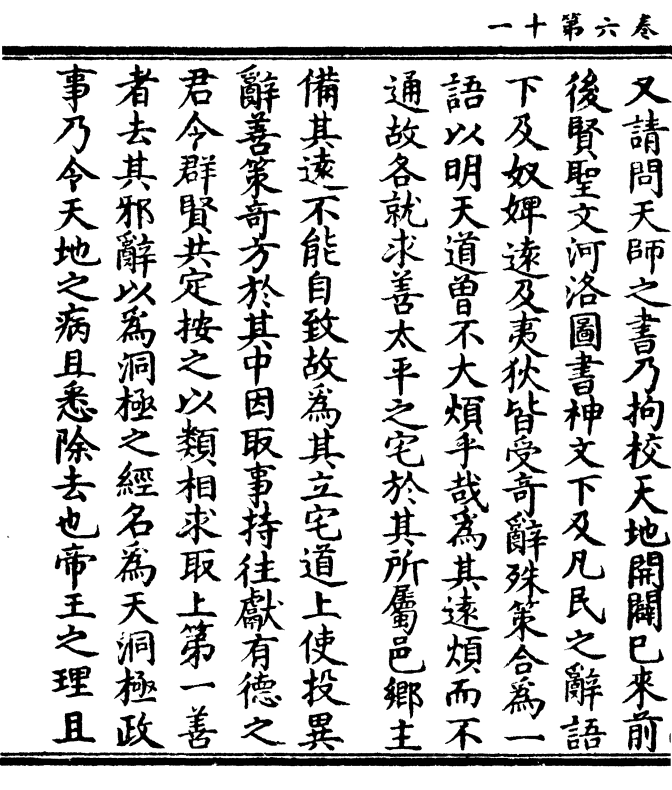 卷六第十一
又請問天師之書乃拘校天地開闢已來前
後賢聖文河洛圖書神文下及凡民之辭語
下及奴婢遠及夷狄皆受奇辭殊策合為一
語以明天道曾不大煩乎哉為其遠煩而不
通故各就求善太平之宅於其所屬邑鄉主
備其遠不能自致故為其立宅道上使投異
辭善策竒方於其中因取事持往獻有德之
君令群賢共定按之以類相求取上第一善
者去其邪辭以為洞極之經名為天洞極政
事乃令天地之病且悉除去也帝王之理且